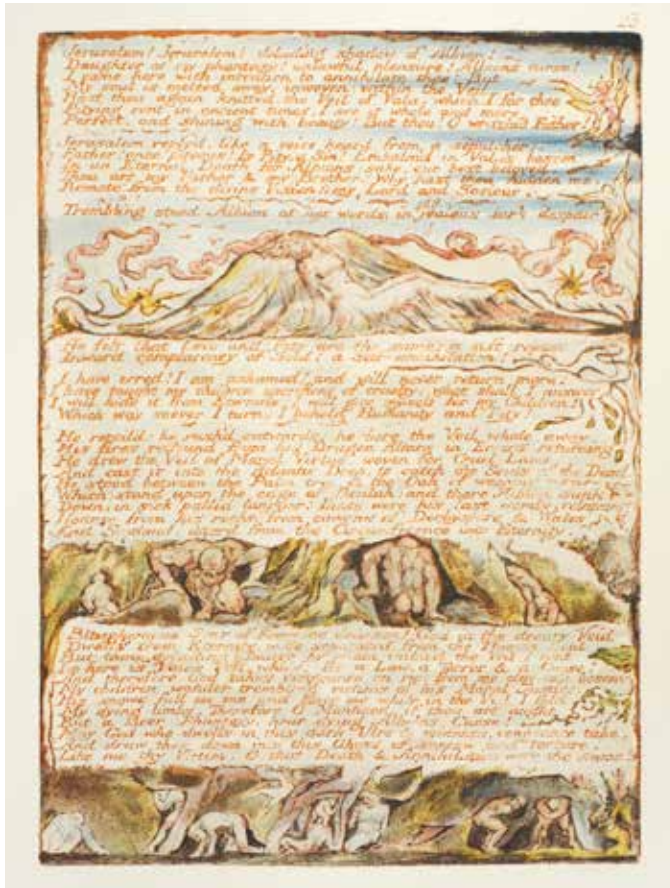 23
Jerusalem! Jerusalem! deluding shadow of Albion!
Daughter of my phantasy! unlawful pleasure! Albions curse!
I came here with intention to annihilate thee! But
My soul is melted away, inwoven within the Veil
Hast thou again knitted the Veil of Vala, which I for thee
Pitying rent in ancient times. I see it whole and more
Perfect, and shining with beauty! But thou! O wretched Father!
Jerusalem reply'd, like a voice heard from a sepulcher:
Father! once piteous! Is Pity a Sin? Embalm'd in Vala's bosom
In an Eternal Death for Albions sake, our best beloved.
Thou art my Father & my Brother: Why hast thou hidden me,
Remote from the divine Vision: my Lord and Saviour.
Trembling stood Albion at her words in jealous dark despair:
He felt that Love and Pity are the same; a soft repose!
Inward complacency of Soul: a Self-annihilation!
I have erred! I am ashamed! and will never return more:
I have taught my children sacrifices of cruelty: what shall I answer?
I will hide it from Eternals! I will give myself for my Children!
Which way soever I turn, I behold Humanity and Pity!
He recoil'd: he rush'd outwards; he bore the Veil whole away
His fires redound from his Dragon Altars in Errors returning.
He drew the Veil of Moral Virtue, woven for Cruel Laws,
And cast it into the Atlantic Deep, to catch the Souls of the Dead.
He stood between the Palm tree & the Oak of weeping
Which stand upon the edge of Beulah; and there Albion sunk
Down in sick pallid languor! These were his last words, relapsing!
Hoarse from his rocks, from caverns of Derbyshire & Wales
And Scotland, utter'd from the Circumference into Eternity.
Blasphemous Sons of Feminine delusion! God in the dreary Void
Dwells from Eternity, wide separated from the Human Soul
But thou deluding Image by whom imbu'd the Veil I rent
Lo here is Valas Veil whole, for a Law, a Terror & a Curse!
And therefore God takes vengeance on me: from my clay-cold bosom
My children wander trembling victims of his Moral Justice.
His snows fall on me and cover me, while in the Veil I fold
My dying limbs. Therefore O Manhood, if thou art aught
But a meer Phantasy, hear dying Albions Curse!
May God who dwells in this dark Ulro & voidness, vengeance take,
And draw thee down into this Abyss of sorrow and torture,
Like me thy Victim. O that Death & Annihilation were the same!